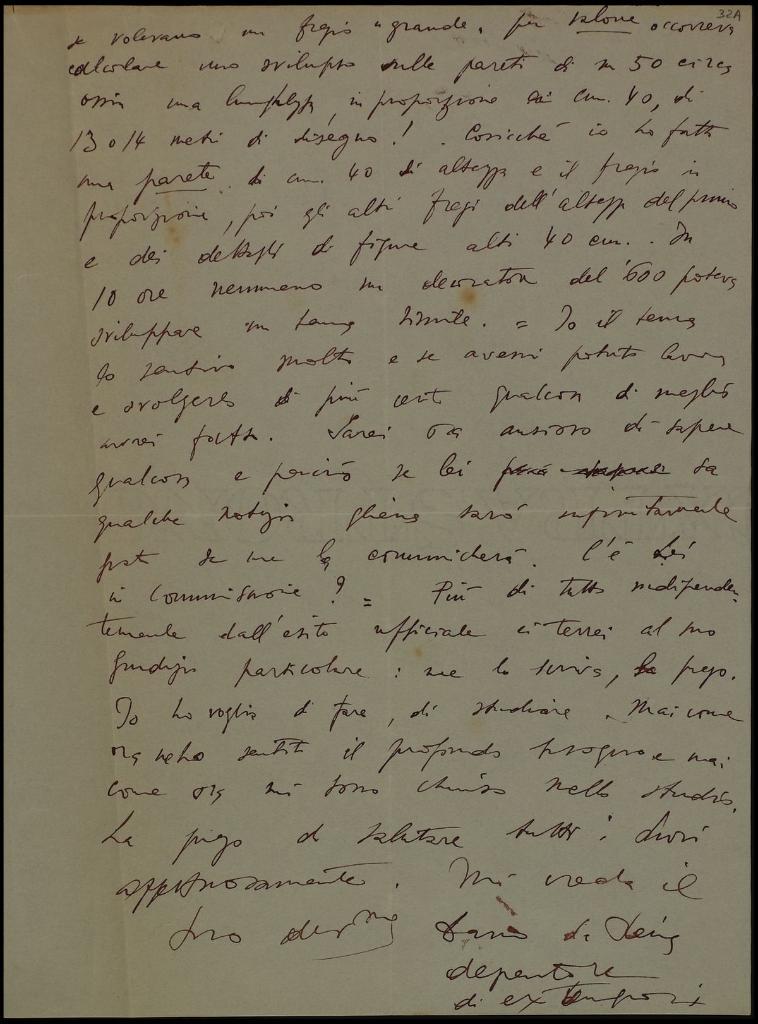 32A
se volevano un fregio "grande" per salone occorreva
calcolare uno sviluppo sulle pareti di m 50 circa
ossia una lunghezza, in proporzione di cm. 40, di
13 o 14 metri di disegno! . Cosicché io ho fatto
una parete di cm. 40 di altezza e il fregio in
proporzione, poi gli altri fregi dell'altezza del primo
e dei dettagli di figure alti 40 cm. . In
10 ore nemmeno un decoratore del '600 poteva
sviluppare un tema simile. = Io il tema
lo sentivo molto e se avessi potuto
e svolgere di più certo qualcosa di meglio
avrei fatto. Sarei ora ansioso di sapere
qualcosa e perciò se lei sa
qualche notizia gliene sarò infinitamente
grato se me la comunicherà. C'è Lei
in Commissione? = Più di tutto indipenden
temente dall'esito ufficiale ci terrei al suo
giudizio particolare: me lo scriva, la prego.
Io ho voglia di fare, di studiare. Mai come
ora ne ho sentito il profondo bisogno e mai
come ora mi sono chiuso nello studio.
La prego di salutare tutti i Suoi
affettuosamente. Mi creda il
Suo dev.mo